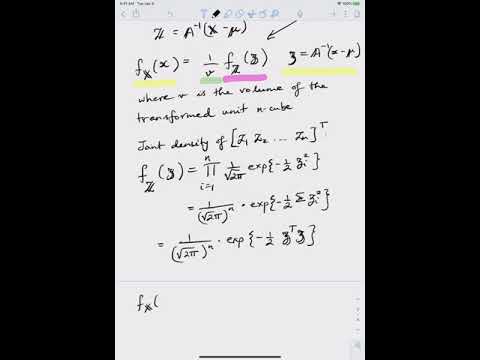 9:41 AM Tue Jan 9
Z = A⁻¹(X - μ)
f_X(x) = 1/v f_Z(z) z = A⁻¹(x - μ)
where v is the volume of the
transformed unit n-cube
Joint density of [Z₁ Z₂ ... Zn]ᵀ
f_Z(z) = ∏ⁿᵢ₌₁ 1/√2π exp{-1/2 zᵢ²}
= 1/(√2π)ⁿ · exp{-1/2 Σ zᵢ²}
= 1/(√2π)ⁿ · exp{-1/2 zᵀz}
f_X(